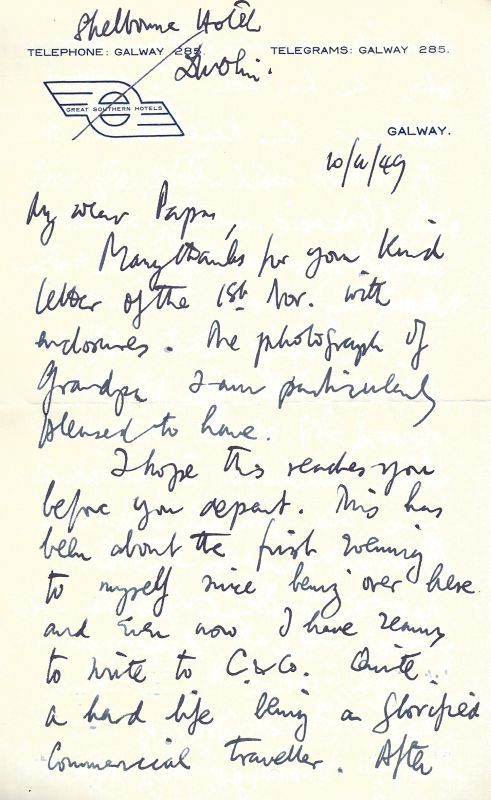 Shelbourne Hotel
TELEPHONE: GALWAY 285. TELEGRAMS: GALWAY 285.
Dublin.
GREAT SOUTHERN HOTELS
GALWAY.
10/11/49
My dear Papa,
Many thanks for your kind
letter of the 1st Nov. with
enclosures. The photograph of
Grandpa I am particularly
pleased to have.
I hope this reaches you
before you depart. This has
been about the first evening
to myself since being over here
and even now I have really
to write to C & Co. Quite
a hard life being a glorified
Commercial traveller. After